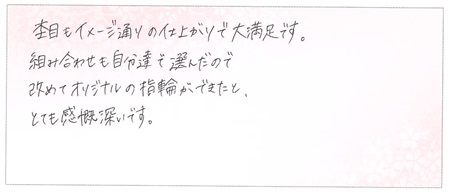 杢目もイメージ通りの仕上がりで大満足です。
組み合わせも自分達で選んだので
改めてオリジナルの指輪ができたと、
とても感慨深いです。